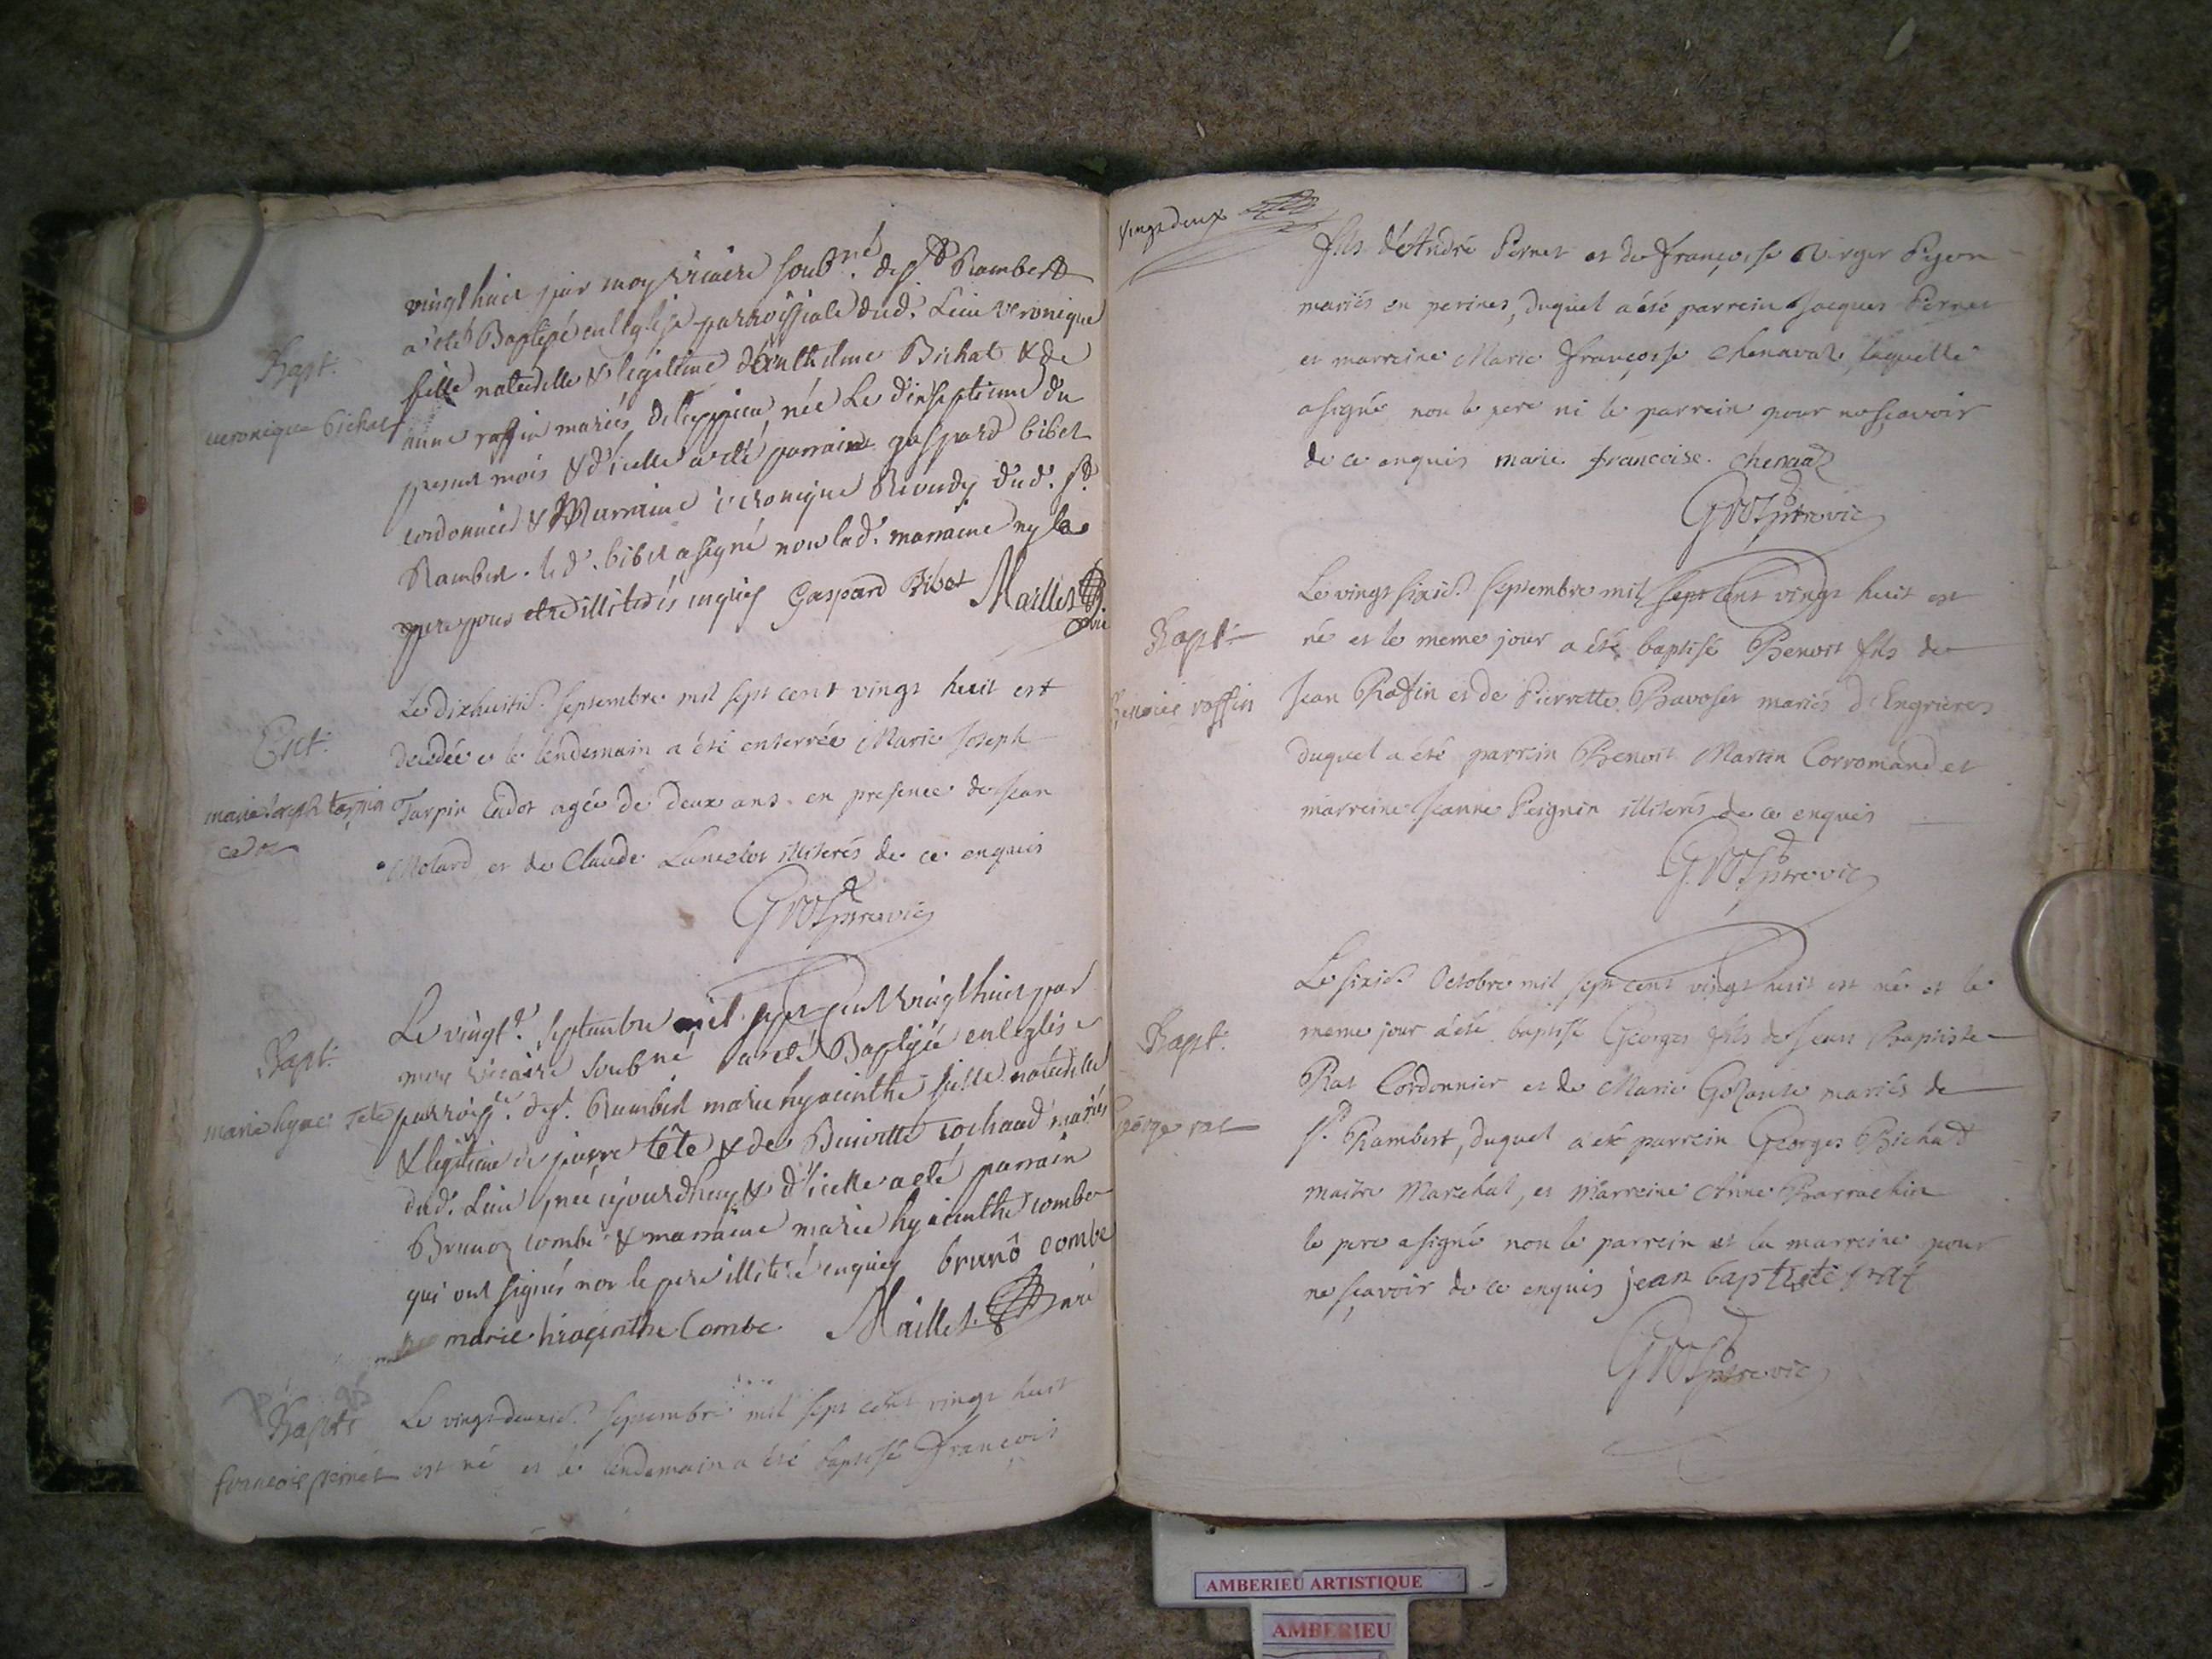 Bapt.
veronique bichat
vingt huit par moy vicaire soubné. de st Rambert
a été Baptisé en l'eglise parroissiale dud. Lieu veronique
fille naturelle & legitime d'Anthelme Bichat & de
anne raffin mariés née Le dixseptieme du
present mois & d'icelle a eté parrain gaspard bibet
cordonnier & Marraine veronique Revudy dud. st.
Rambert. led. bibet a signé non lad. marraine ny le
pere pour etre illiterés enquis Gaspard Bibet Maillet vic
Ent.
marie joseph tarpin
cador
Le dixhuitie. septembre mil sept cent vingt huit est
decedée et le lendemain a été enterrée Marie Joseph
Tarpin Cador agée de deux ans en presence de Jean
Molard et de Claude Lancelot illiterés de ce enquis
Gros ptre vic
Bapt.
marie hyac. Tete
Le vingt. septembre mil sept cent vingt huit par
moy vicaire soubné a eté Baptisée en l'eglise
parroisse. de st. Rambert marie hyacinthe fille naturelle
& legitime de pierre tête & de Benoitte cochand mariés
dud. Lieu, née ce jourdhuy & d'icelle a eté parrain
Bruno combe & marraine marie hyacinthe combe
qui ont signés non le pere illiteré enquis brunô combe
marie hiacinthe Combe Maillet
Bapte
francois pernet
Le vingt deuxie. septembre mil sept cent vingt huit
est né et le lendemain a été baptisé François
vingt deux
fils d'André Pernet et de Françoise Verger Pigeon
mariés en perines, duquel a été parrein Jacques Pernet
et marreine Marie Françoise Chenaval, laquelle
a signé non le pere ni le parrein pour ne sçavoir
de ce enquis marie francoise. chenaval
Gros ptre vic
Bapt.
Benoit raffin
Le vingt sixie. septembre mil sept cent vingt huit est
né et le meme jour a été baptisé Benoit fils de
Jean Raffin et de Pierrette Ravoset mariés d'Engrieres
duquel a été parrein Benoit Martin Corromand et
marreine Jeanne Peignin illiterés de ce enquis
Gros ptre vic
Bapt.
George rat
Le sixie. Octobre mil sept cent vingt huit est né et le
meme jour a été baptisé Georges fils de Jean Baptiste
Rat Cordonnier et de Marie mariés de
st. Rambert, duquel a été parrein Georges Bichat
maitre Marechal, et marreine Anne Barrachin
le pere a signé non le parrein et la marreine pour
ne sçavoir de ce enquis jean baptiste rat
Gros ptre vic
AMBERIEU ARTISTIQUE
AMBERIEU